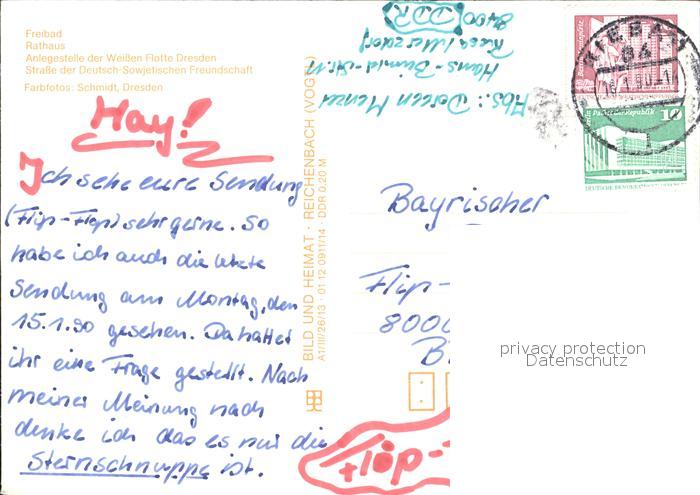 Freibad
Rathaus
Anlegestelle der Weißen Flotte Dresden
Straße der Deutsch-Sowjetischen Freundschaft
Farbfotos: Schmidt, Dresden
Hay!
Ich sehe eure Sendung
(Flip-Flop) sehr gerne. So
habe ich auch die letzte
Sendung am Montag, den
15.1.90 gesehen. Da hattet
ihr eine Frage gestellt. Nach
meiner Meinung nach
denke ich das es nur die
Sternschnuppe ist.
BILD UND HEIMAT · REICHENBACH (VOGTL)
A1/III/26/13 · 01 12 0911/14 · DDR 0,20 M
Abs.: Doreen
Hans-
Riesa
8400
DDR
RIESA
84
10
DEUTSCHE
Bayrischer
Flip-
8000
privacy protection
Datenschutz
Flop-